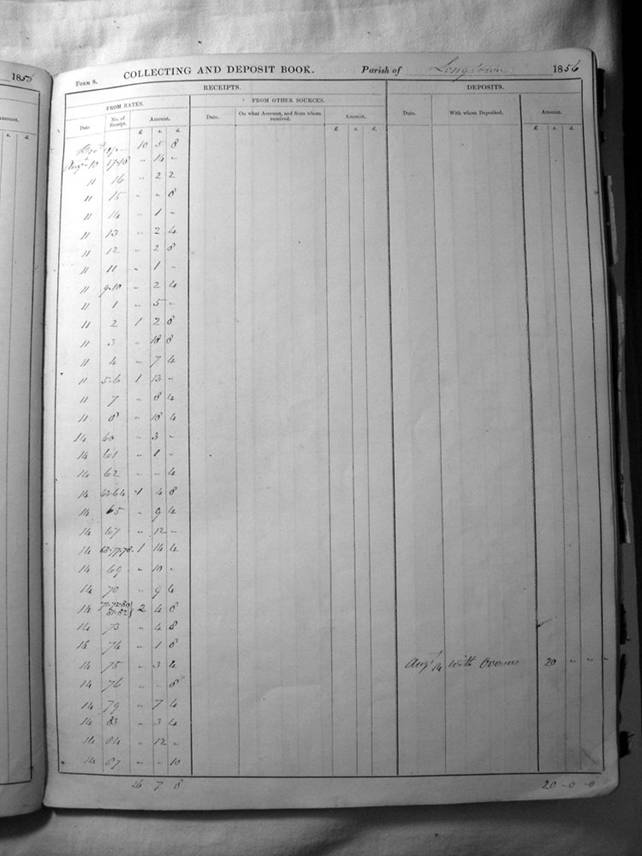 1855
Form 8. COLLECTING AND DEPOSIT BOOK. Parish of Longtown 1856
RECEIPTS. DEPOSITS.
FROM RATES. FROM OTHER SOURCES.
Date No. of Receipt. Amount. Date. On what Account, and from whom received. Amount. Date. With whom Deposited. Amount.
£ s. d. £ s. d. £ s. d.
10 5 8
Augt 10 17-18 - 14 -
11 16 - 2 2
11 15 - - 8
11 14 - 1 -
11 13 - 2 4
11 12 - 2 8
11 11 - 1 -
11 9-10 - 2 4
11 1 - 5 -
11 2 1 2 8
11 3 - 18 8
11 4 - 7 4
11 5-6 1 13 -
11 7 - 8 4
11 8 - 18 4
14 60 - 3 -
14 61 - 1 -
14 62 - - 4
14 63-64 1 4 8
14 65 - 9 4
14 67 - 12 -
14 68-77-78 1 14 4
14 69 - 10 -
14 70 - 9 4
14 2 4 8
14 73 - 4 8
14 74 - 1 8
14 75 - 3 4 Augt 14 With 20 - -
14 76 - - 8
14 79 - 7 4
14 83 - 3 4
14 84 - 12 -
14 87 - - 10
26 7 8 20-0-0